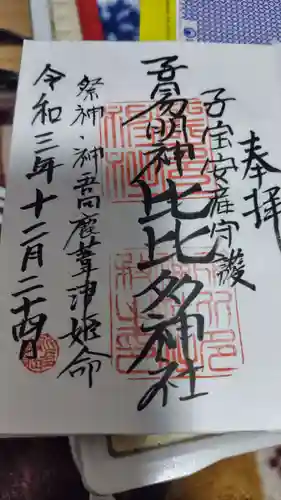 奉拝
子宝安産守護
子易明神比比多神社
祭神・神吾田鹿葦津姫命
令和三年十二月二十四日